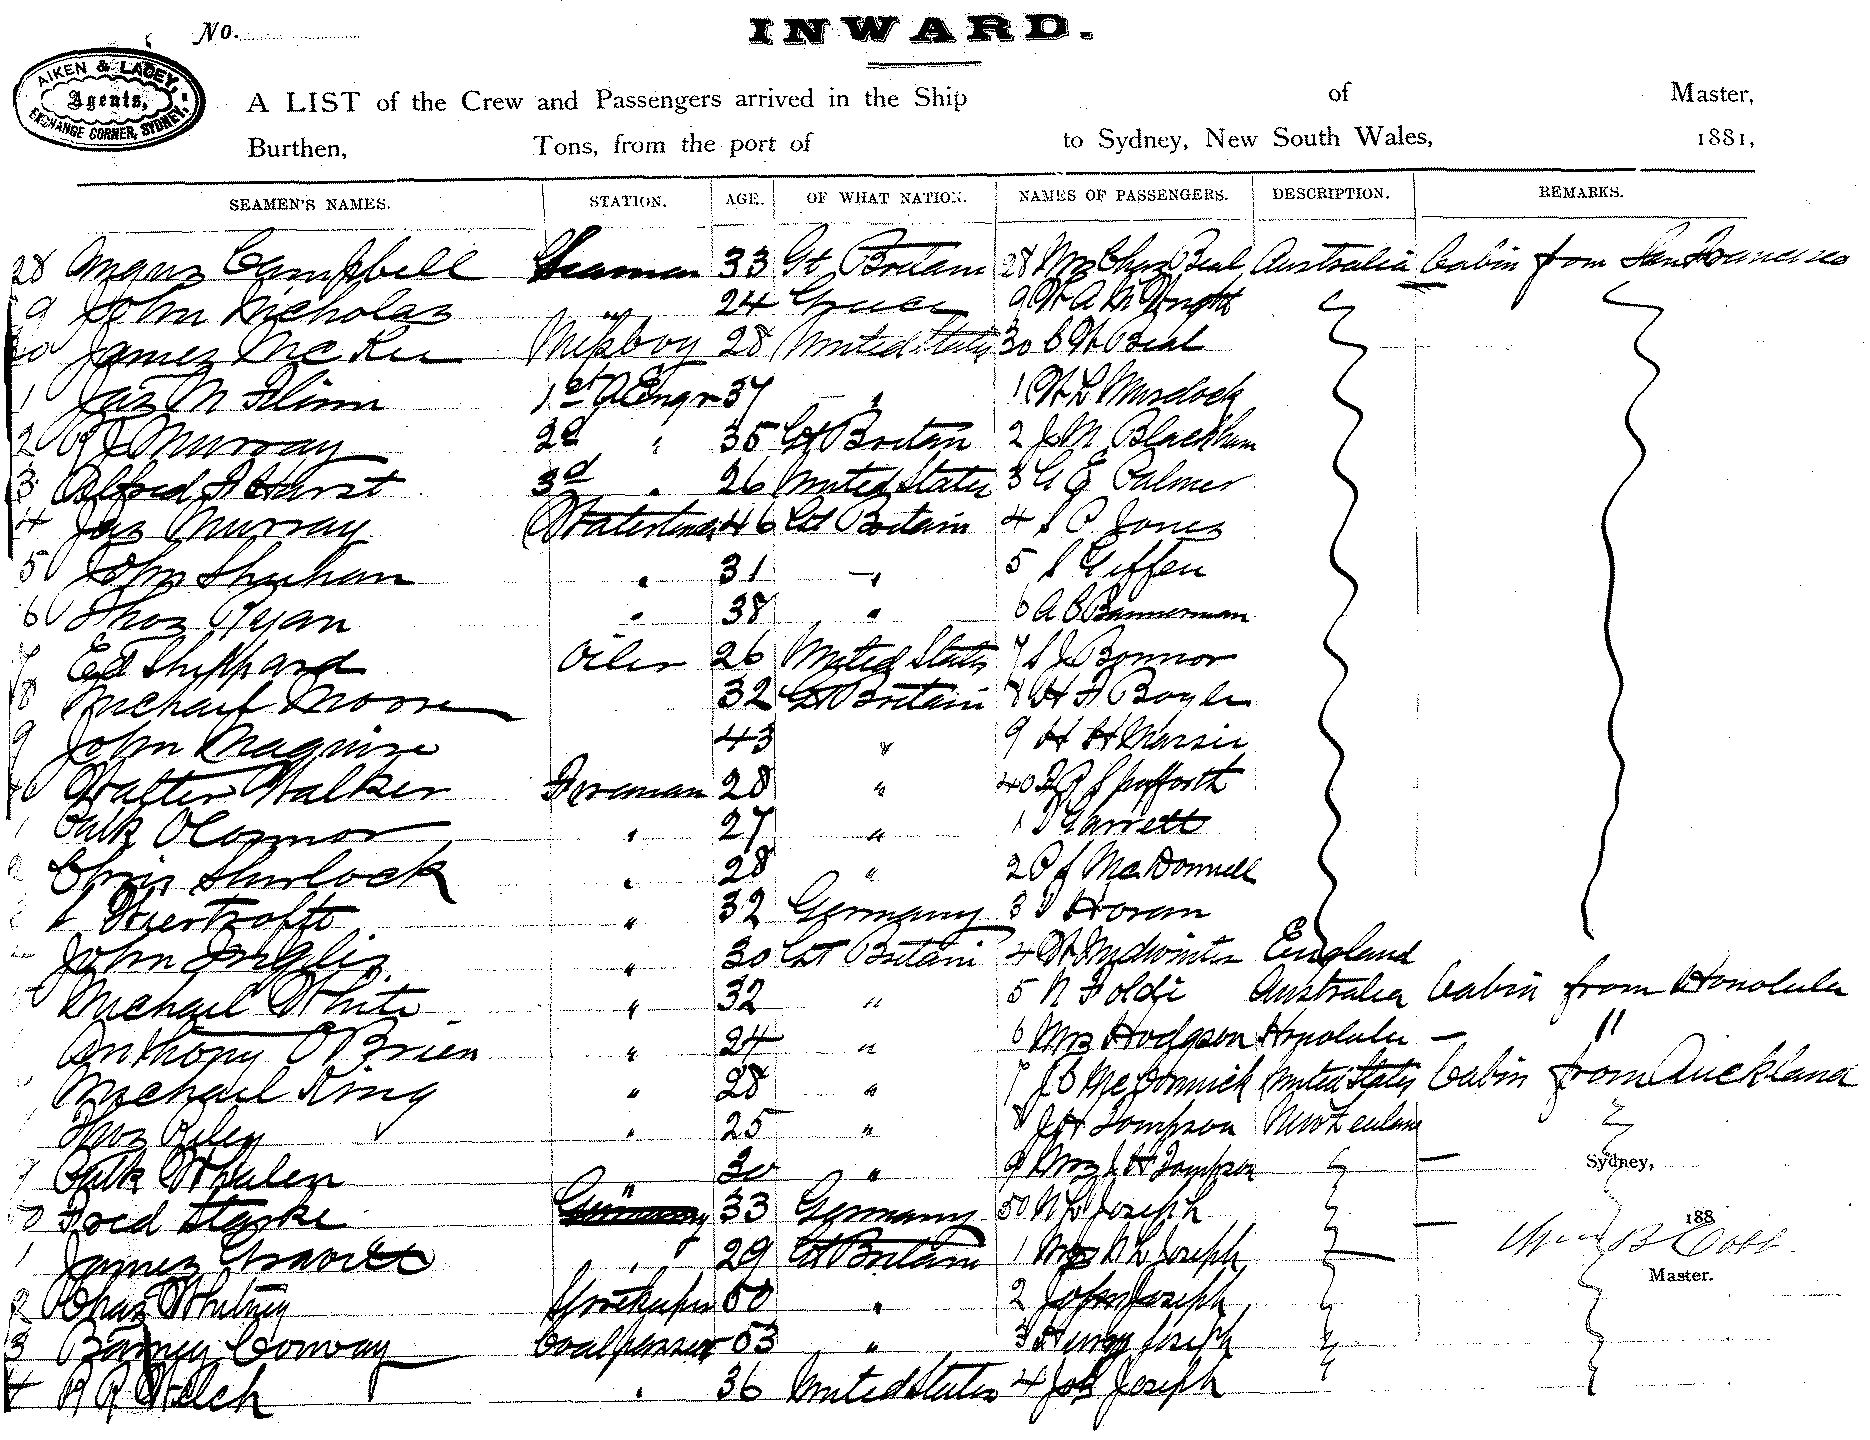 No.
INWARD.
AIKEN & LACEY,
Agents,
EXCHANGE CORNER, SYDNEY.
A LIST of the Crew and Passengers arrived in the Ship of Master,
Burthen, Tons, from the port of to Sydney, New South Wales, 1881,
SEAMEN'S NAMES. STATION. AGE. OF WHAT NATION. NAMES OF PASSENGERS. DESCRIPTION. REMARKS.
28 Angus Campbell Seaman 33 Gt Britain 28 Mrs Chas Beal Australia Cabin from San Francisco
9 John Nicholas " 24 Greece 9
30 James McKee Messboy 28 United States 30 C W Beal
1 Jas M Flinn 1st A Engr 37 " 1 W L Murdoch
2 R J Murray 2d " 35 Gt Britain 2 J M Blackham
3 Alfred F Hurst 3d " 26 United States 3 G E Palmer
4 Jas Murray Watertender 46 Gt Britain 4 S P Jones
5 John Sheehan " 31 " 5 G Giffen
6 Thos Ryan " 38 " 6 A C Bannerman
7 Ed Shippard Oiler 26 United States 7 G J Bonnor
8 Michael Moore 32 Gt Britain 8 H F Boyle
9 John Maguire 43 " 9 H H Massie
40 Walter Walker Fireman 28 " 40 F R Spofforth
1 Patk O'Connor " 27 " 1 T Garrett
2 Chris Shurlock " 28 " 2 P S McDonnell
" 32 Germany 3 T Horan
John Inglis " 30 Gt Britain 4 W Midwinter England
Michael White " 32 " 5 Australia Cabin from Honolulu
Anthony O'Brien " 24 " 6 Mrs Hodgson Honolulu — "
Michael King " 28 " 7 J C McCormick United States Cabin from Auckland
Thos Riley " 25 " 8 J H Tompson New Zealand
9 Patk Whalen " 30 " 9 Mrs J H Tompson — Sydney,
50 Fred Starke 33 Germany 50 N L Joseph — 188
1 James " 29 Gt Britain 1 Mrs N L Joseph B Cobb
Master.
2 Chas Whitney Storekeeper 50 " 2 John Joseph
3 Barney Conway Coalpasser 53 " 3 Henry Joseph
4 R R Welch " 36 United States 4 Joseph